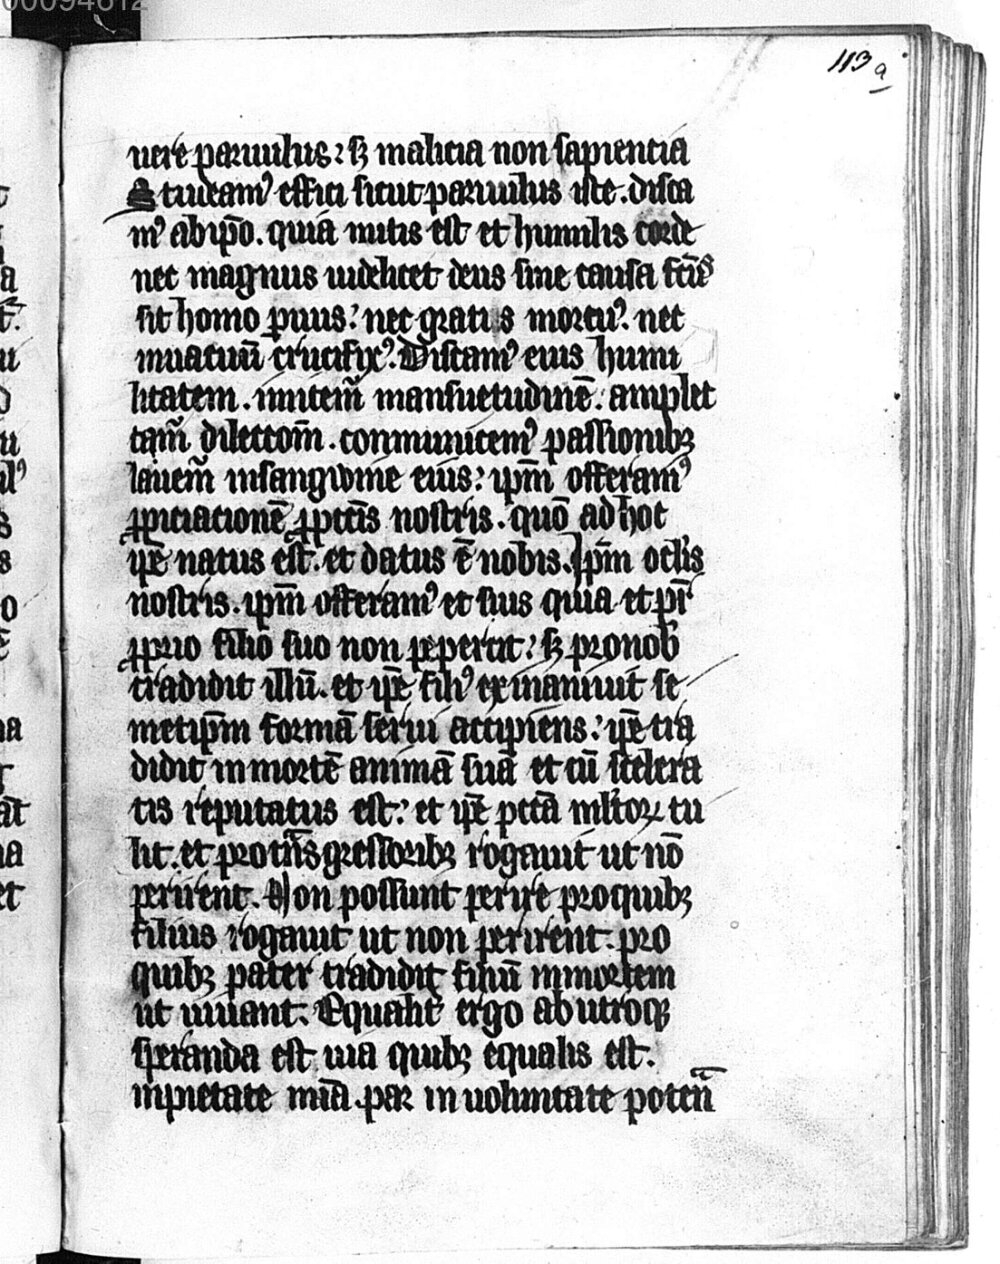 00094812
113a
uere paruulus: sꝫ malicia non sapiencia
Studeamꝰ effici sicut paruulus iste. disca
mꝰ ab ip̄o. quia mitis est et humilis corde
nec magnus uidelicet deus sine causa fc̄us
sit homo ꝑuus: nec gratis mortuꝰ. nec
inuacuū crucifixꝰ. Discamꝰ eius humi
litatem. imitem̄ mansuetudinē. amplec
tam̄ dilectōm̄. conmunicemꝰ passionibꝫ
lauem̄ in sangwine eius: ip̄m offeramꝰ
ꝓpiciacionē ꝓ pctīs nostris. quō ad hoc
ip̄e natus est. et datus ē nobis. Ip̄m oclīs
nostris. ip̄m offeramꝰ et suis quia et pr̄
ꝓprio filio suo non pepercit: sꝫ pro nob̄
tradidit illū. et ip̄e filiꝰ exinaniuit se
metip̄m formā serui accipiens: ip̄e tra
didit in mortē animā suā et cū scelera
tis reputatus est: et ip̄e pctā ml̄toꝝ tu
lit. et pro tn̄sgressoribꝫ rogauit ut nō
perirent. Non possunt perire pro quibꝫ
filius rogauit ut non perirent. pro
quibꝫ pater tradidit filiū in mortem
ut uiuant. Equalit̄ ergo ab utroqꝫ
speranda est uia quibꝫ equalis est.
in pietate mīa. par in uoluntate poten̄